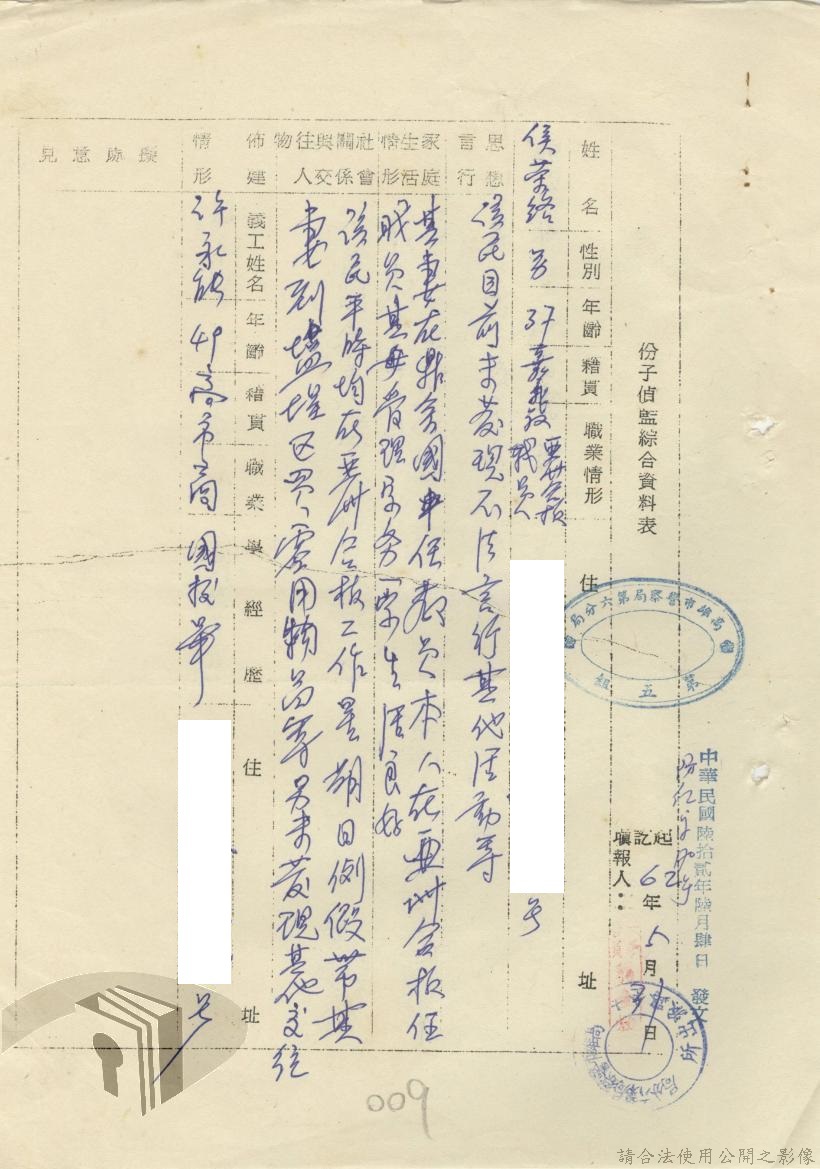 中華民國陸拾貳年陸月肆日 發文
份子偵監綜合資料表
起訖
62年5月31日
填報人：
高雄市警察局第六分局
第五組
姓名 性別 年齡 籍貫 職業情形 住址
侯榮
男 37 嘉義 亞洲合板職員
號
思想言行
該民目前未發現不法言行其他活動等
家庭生活情形
其妻在鼎金國中任教員本人在亞洲合板任
職員其每管理家務一票生活良好
社會關係與交往人物
該民平時均在亞洲合板工作星期日例假帶其
妻到鹽埕區買零用物品等另未發現其他交往
佈建情形
義工姓名 年齡 籍貫 職業 學經歷 住址
許 49 高市 商 國校畢
號
擬辦意見
009
請合法使用公開之影像